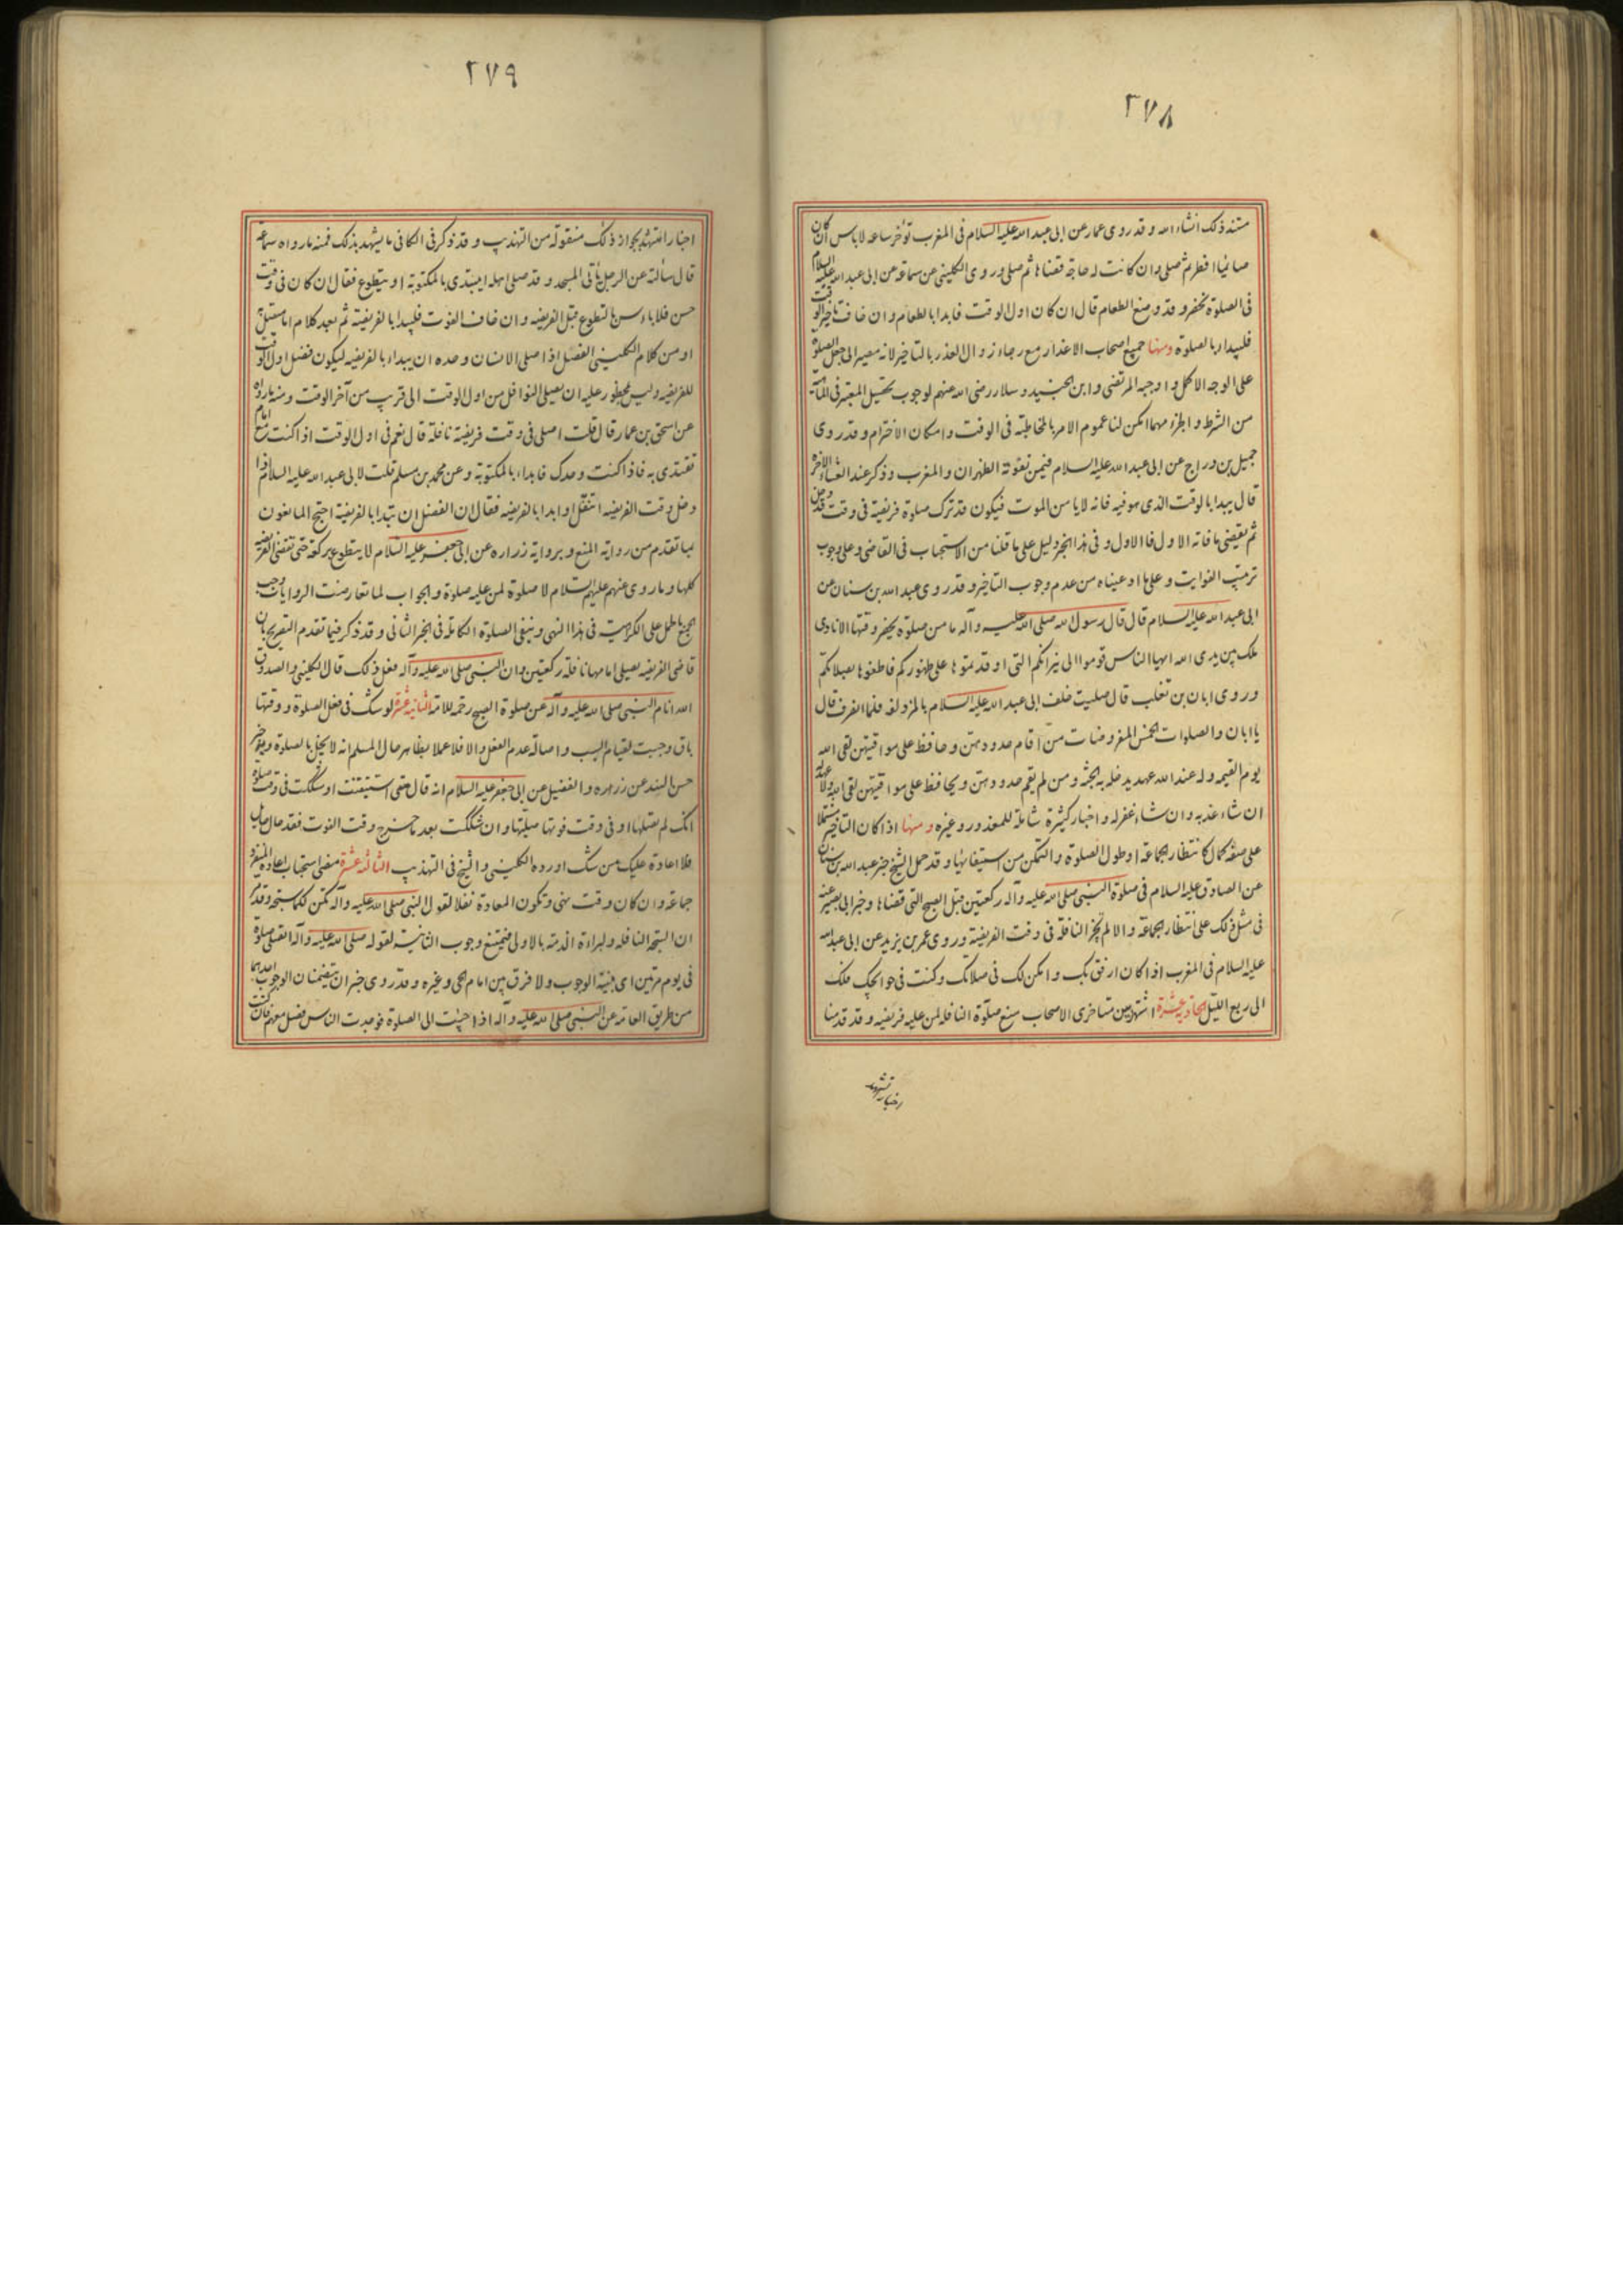 ٢٧٨
مستند ذلك انشاء الله و قد روى عمار عن ابى عبد الله عليه السلام فى المغرب تؤخر ساعة لا باس ان كان
صائما افطر ثم صلى وان كانت له حاجة قضاها ثم صلى وروى الكلينى عن سماعة عن ابى عبد الله عليه السلام
فى الصلوة تحضر و قد وضع الطعام قال ان كان اول الوقت فابدا بالطعام وان خاف تاخير الوقت
فليبدا بالصلوة ومنها جميع اصحاب الاعذار مع رجاء زوال العذر بالتاخير لانه مصير الى جعل الصلوة
على الوجه الاكمل و اوجبه المرتضى وابن الجنيد وسلار رضى الله عنهم لوجوب تحصيل المعتبر فى
من الشرط و الجزء مهما امكن لنا عموم الامر بالمخاطبة فى الوقت وامكان الاخترام وقد روى
جميل بن دراج عن ابى عبد الله عليه السلام فيمن تفوته الظهران والمغرب وذكر عند العشاء الاخرة
قال يبدا بالوقت الذى هو فيه فانه لا يامن الموت فيكون قد ترك صلوة فريضة فى وقت قد دخل
ثم يقضى ما فاته الاول فالاول و فى هذا الخبر دليل على ما قلنا من الاستحباب فى القاضى وعلى وجوب
ترتيب الفوايت و على ما ادعيناه من عدم وجوب التاخير وقد روى عبد الله بن سنان عن
ابى عبد الله عليه السلام قال قال رسول الله صلى الله عليه وآله ما من صلوة يحضر وقتها الا نادى
ملك بين يدى الله ايها الناس قوموا الى نيرانكم التى اوقدتموها على ظهوركم فاطفوها بصلاتكم
وروى ابان بن تغلب قال صليت خلف ابى عبد الله عليه السلام بالمزدلفة فلما انصرف قال
يا ابان والصلوات الخمس المفروضات من اقام حدودهن وحافظ على مواقيتهن لقى الله
يوم القيمة وله عند الله عهد يدخله به الجنة ومن لم يقم حدودهن ويحافظ على مواقيتهن لقى الله ولا عهد له
ان شاء عذبه وان شاء غفر له واخبار كثيرة شاملة للمعذور وغيره ومنها اذا كان التاخير مشتملا
على صفة كمال كانتظار الجماعة او طول الصلوة والتمكن من استيفائها وقد حمل الشيخ خبر عبد الله بن سنان
عن الصادق عليه السلام فى صلوة النبى صلى الله عليه وآله ركعتين قبل الصبح التى قضاها وخبر ابى بصير عنه
فى مثل ذلك على انتظار الجماعة والا لم تجز النافلة فى وقت الفريضة وروى عمر بن يزيد عن ابى عبد الله
عليه السلام فى المغرب اذا كان ارفق بك وامكن لك فى صلاتك وكنت فى حوائجك فلك
الى ربع الليل الحادية عشرة اشتهر بين متاخرى الاصحاب منع صلوة النافلة لمن عليه فريضه وقد قدمنا
٢٧٩
اخبارا تشهد بجواز ذلك منقولة من التهذيب و قد ذكر فى الكافى ما يشهد بذلك فمنه ما رواه سماعة
قال سالته عن الرجل ياتى المسجد وقد صلى اهله ايبتدى بالمكتوبة او يتطوع فقال ان كان فى وقت
حسن فلا باس بالتطوع قبل الفريضه وان خاف الفوت فليبدا بالفريضة ثم بعد كلام
او من كلام الكلينى الفضل اذا صلى الانسان وحده ان يبداء بالفريضه ليكون فضل اول الوقت
للفريضه وليس بمحظور عليه ان يصلى النوافل من اول الوقت الى قريب من آخر الوقت ومنه ما رواه
عن اسحق بن عمار قال قلت اصلى فى وقت فريضة نافلة قال نعم فى اول الوقت اذا كنت مع امام
تقتدى به فاذا كنت وحدك فابداء بالمكتوبة وعن محمد بن مسلم قلت لابى عبد الله عليه السلام اذا
دخل وقت الفريضه اتنفل او ابدا بالفريضه فقال ان الفضل ان تبدا بالفريضة احتج المانعون
بما تقدم من رواية المنع وبرواية زراره عن ابى جعفر عليه السلام لا يتطوع بركعة حتى تقضى الفريضة
كلها وما روى عنهم عليهم السلام لا صلوة لمن عليه صلوة والجواب لما تعارضت الروايات وجب
الجمع بالحمل على الكراهيت فى هذا النهى وبنفى الصلوة الكاملة فى الخبر الثانى وقد ذكر فيما تقدم التصريح بان
قاضى الفريضه يصلى امامها نافلة ركعتين وان النبى صلى الله عليه وآله فعل ذلك قال الكلينى والصدوق
الله انام النبى صلى الله عليه وآله عن صلوة الصبح رحمة للامة الثانية عشرة لو شك فى فعل الصلوة ووقتها
باق وجبت لقيام السبب واصالة عدم الفعل والا فلا عملا بظاهر حال المسلم انه لا يخل بالصلوة وبخبر
حسن السند عن زرارة والفضيل عن ابى جعفر عليه السلام انه قال متى استيقنت او شككت فى وقت صلوة
انك لم تصلها او فى وقت فوتها صليتها وان شككت بعد ما خرج وقت الفوت فقد حال حايل
فلا اعادة عليك من شك اورده الكلينى والشيخ فى التهذيب الثالثة عشرة مضى استحباب اعادة المنفرد
جماعة وان كان وقت نهى وتكون المعادة نفلا لقول النبى صلى الله عليه وآله تكن لكما سبحة وقد ذكر
ان السبحة النافله ولبراءة الذمة بالاولى فيمتنع وجوب الثانية لقوله صلى الله عليه وآله لا تصلى صلوة
فى يوم مرتين اى بنية الوجوب ولا فرق بين امام الحى وغيره وقد روى خبران يتضمنان الوجوب احدهما
من طريق العامة عن النبى صلى الله عليه وآله اذا جئت الى الصلوة فوجدت الناس فصل معهم فان كنت